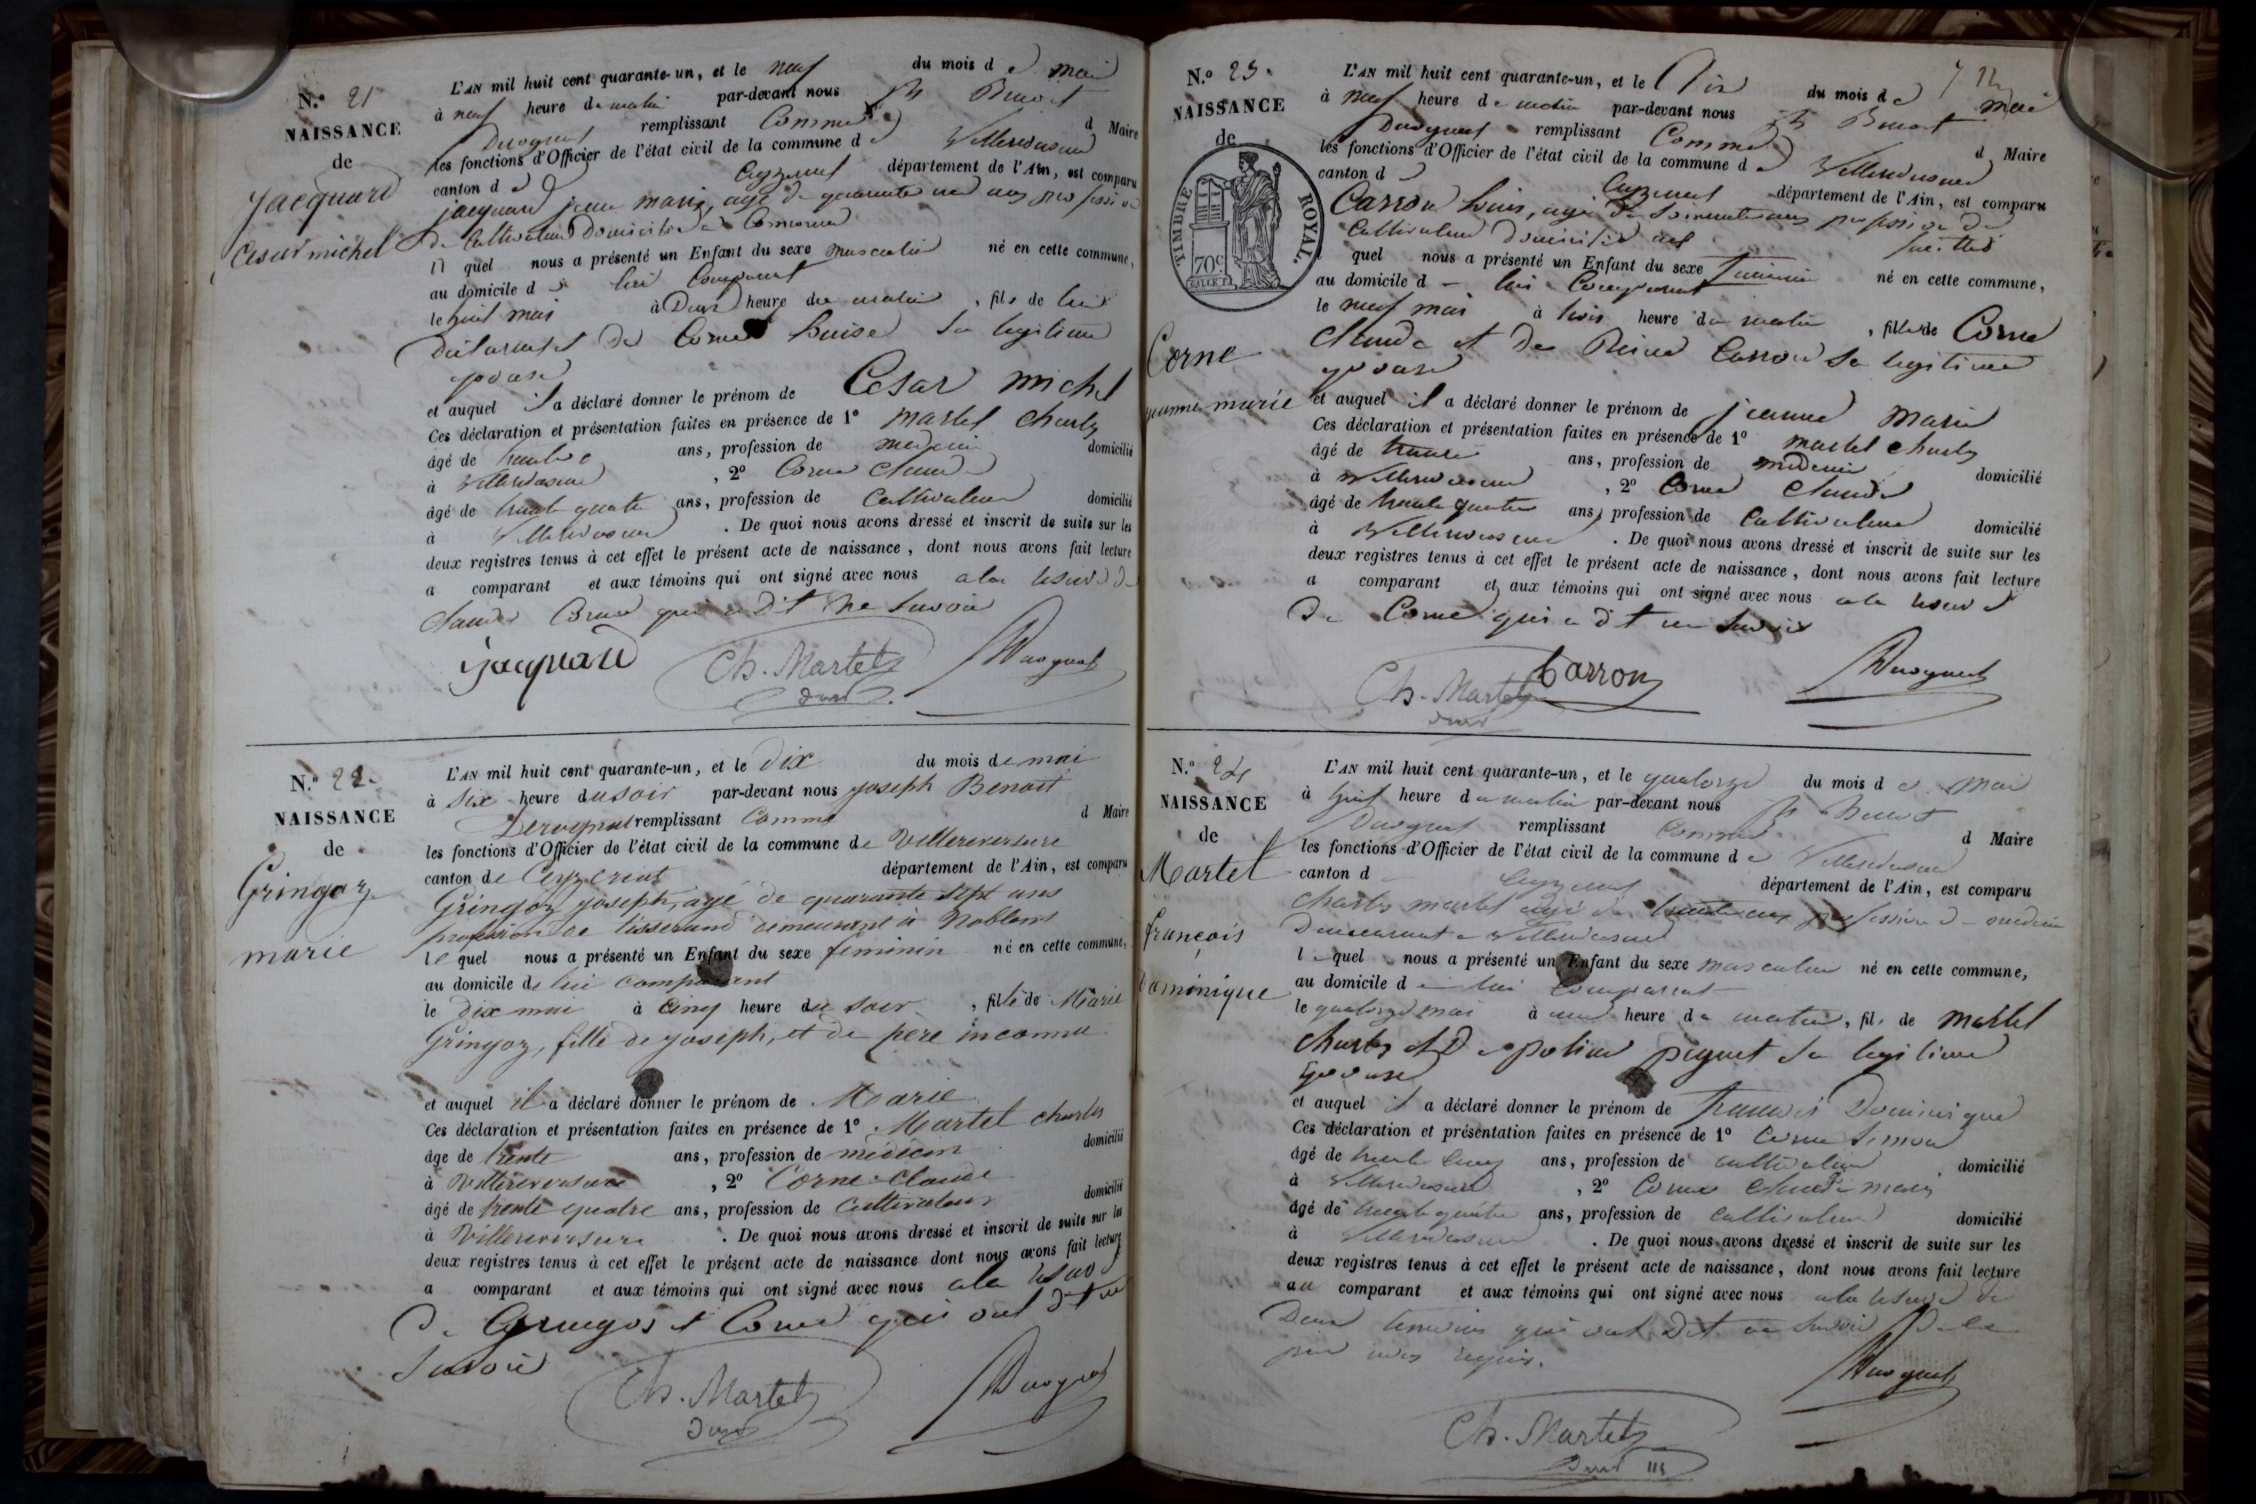 N.º 21
NAISSANCE
de
Jacquard
Cesar michel
L'AN mil huit cent quarante-un, et le neuf du mois d e mai
à neuf heure du matin par-devant nous Jh Benoit
remplissant Comme d Maire
les fonctions d'Officier de l'état civil de la commune d e Villereversure
canton d e Ceyzeriat département de l'Ain, est comparu
jacquard jean marie, agé de quarante un ans profession
de Cultivateur domicilié a
l quel nous a présenté un Enfant du sexe masculin né en cette commune,
au domicile d e lui Comparant
le huit mai à Deux heure du matin, fils de lui
Declarant et De Corne Louise Sa legitime
epouse
et auquel il a déclaré donner le prénom de Cesar michel
Ces déclaration et présentation faites en présence de 1º martel Charles
âgé de trente ans, profession de medecin domicilié
à Villereversure, 2º Corne Claude
âgé de trente quatre ans, profession de Cultivateur domicilié
à Villereversure. De quoi nous avons dressé et inscrit de suite sur les
deux registres tenus à cet effet le présent acte de naissance, dont nous avons fait lecture
a comparant et aux témoins qui ont signé avec nous a la reserve de
Claude Corne qui a dit ne Savoir
jacquard Ch. Martel
N.º 22
NAISSANCE
de
Gringoz
marie
L'AN mil huit cent quarante-un, et le dix du mois de mai
à six heure du soir par-devant nous joseph Benoit
remplissant Comme d Maire
les fonctions d'Officier de l'état civil de la commune de Villereversure
canton de Ceyzeriat département de l'Ain, est comparu
Gringoz joseph, agé de quarante sept ans
profession de tisserand demeurant à Noblens
lequel nous a présenté un Enfant du sexe feminin né en cette commune,
au domicile de lui comparant
le dix mai à Cinq heure du soir, fille de Marie
Gringoz, fille de joseph, et de pere inconnu
et auquel il a déclaré donner le prénom de Marie
Ces déclaration et présentation faites en présence de 1º Martel charles
âgé de trente ans, profession de médecin domicilié
à Villereversure, 2º Corne Claude
âgé de trente quatre ans, profession de Cultivateur domicilié
à Villereversure. De quoi nous avons dressé et inscrit de suite sur les
deux registres tenus à cet effet le présent acte de naissance dont nous avons fait lecture
a comparant et aux témoins qui ont signé avec nous a la reserve
De Gringoz et Corne qui ont dit ne
Savoir
Ch. Martel
N.º 23
NAISSANCE
de
TIMBRE ROYAL.
70c
Corne
jeanne marie
L'AN mil huit cent quarante-un, et le Dix du mois d e mai
à neuf heure du matin par-devant nous Jh Benoit
remplissant Comme d Maire
les fonctions d'Officier de l'état civil de la commune d e Villereversure
canton d e Ceyzeriat département de l'Ain, est comparu
Carron Louis, agé de Soixante ans profession de
Cultivateur domicilié
quel nous a présenté un Enfant du sexe feminin né en cette commune,
au domicile d lui Comparant
le neuf mai à trois heure du matin, fille de Corne
Claude et De Reine Carron Sa legitime
epouse
et auquel il a déclaré donner le prénom de jeanne Marie
Ces déclaration et présentation faites en présence de 1º martel charles
âgé de trente ans, profession de medecin domicilié
à Villereversure, 2º Corne Claude
âgé de trente quatre ans, profession de Cultivateur domicilié
à Villereversure. De quoi nous avons dressé et inscrit de suite sur les
deux registres tenus à cet effet le présent acte de naissance, dont nous avons fait lecture
a comparant et aux témoins qui ont signé avec nous a la reserve
De Corne qui a dit ne Savoir
Ch. Martel Carron
N.º 24
NAISSANCE
de
Martel
françois
Dominique
L'AN mil huit cent quarante-un, et le quatorze du mois d e mai
à huit heure du matin par-devant nous Jh Benoit
remplissant Comme d Maire
les fonctions d'Officier de l'état civil de la commune d e Villereversure
canton d Ceyzeriat département de l'Ain, est comparu
Charles martel agé de trente ans profession d medecin
Demeurant a Villereversure
l quel nous a présenté un Enfant du sexe masculin né en cette commune,
au domicile d e lui Comparant
le quatorze mai à une heure du matin, fils de martel
Charles et D sa legitime
epouse
et auquel il a déclaré donner le prénom de François Dominique
Ces déclaration et présentation faites en présence de 1º Corne Simon
âgé de trente Cinq ans, profession de cultivateur domicilié
à Villereversure, 2º Corne Claude marie
âgé de trente quatre ans, profession de Cultivateur domicilié
à Villereversure. De quoi nous avons dressé et inscrit de suite sur les
deux registres tenus à cet effet le présent acte de naissance, dont nous avons fait lecture
au comparant et aux témoins qui ont signé avec nous a la reserve de
Deux temoins qui ont Dit ne Savoir De ce
par nous requis.
Ch. Martel